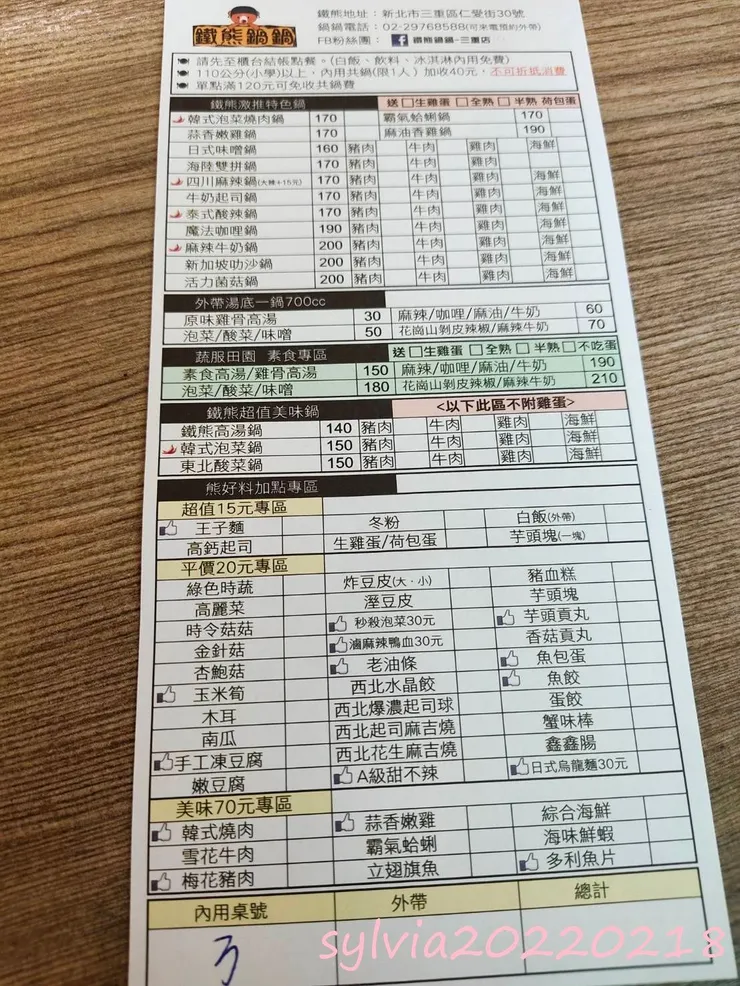 鐵熊鍋鍋
鐵熊地址：新北市三重區仁愛街30號
鍋鍋電話：02-29768588(可來電預約外帶)
FB粉絲團： 鐵熊鍋鍋-三重店
請先至櫃台結帳點餐。(白飯、飲料、冰淇淋內用免費)
110公分(小學)以上、內用共鍋(限1人)加收40元，不可折抵消費
單點滿120元可免收共鍋費
鐵熊激推特色鍋 送□生雞蛋 □全熟 □半熟 荷包蛋
韓式泡菜燒肉鍋 170 霸氣蛤蜊鍋 170
蒜香嫩雞鍋 170 麻油香雞鍋 190
日式味噌鍋 160 豬肉 牛肉 雞肉 海鮮
海陸雙拼鍋 170 豬肉 牛肉 雞肉
四川麻辣鍋(大辣+15元) 170 豬肉 牛肉 雞肉 海鮮
牛奶起司鍋 170 豬肉 牛肉 雞肉 海鮮
泰式酸辣鍋 170 豬肉 牛肉 雞肉 海鮮
魔法咖哩鍋 190 豬肉 牛肉 雞肉 海鮮
麻辣牛奶鍋 200 豬肉 牛肉 雞肉 海鮮
新加坡叻沙鍋 200 豬肉 牛肉 雞肉 海鮮
活力菌菇鍋 200 豬肉 牛肉 雞肉 海鮮
外帶湯底一鍋700cc
原味雞骨高湯 30 麻辣/咖哩/麻油/牛奶 60
泡菜/酸菜/味噌 50 花崗山剝皮辣椒/麻辣牛奶 70
蔬服田園 素食專區 送□生雞蛋 □全熟 □半熟 □不吃蛋
素食高湯/雞骨高湯 150 麻辣/咖哩/麻油/牛奶 190
泡菜/酸菜/味噌 180 花崗山剝皮辣椒/麻辣牛奶 210
鐵熊超值美味鍋 <以下此區不附雞蛋>
鐵熊高湯鍋 140 豬肉 牛肉 雞肉 海鮮
韓式泡菜鍋 150 豬肉 牛肉 雞肉 海鮮
東北酸菜鍋 150 豬肉 牛肉 雞肉 海鮮
熊好料加點專區
超值15元專區
王子麵 冬粉 白飯(外帶)
高鈣起司 生雞蛋/荷包蛋 芋頭塊(一塊)
平價20元專區
綠色時蔬 炸豆皮(大・小) 豬血糕
高麗菜 溼豆皮 芋頭塊
時令菇菇 秒殺泡菜30元 芋頭貢丸
金針菇 滷麻辣鴨血30元 香菇貢丸
杏鮑菇 老油條 魚包蛋
玉米筍 西北水晶餃 魚餃
木耳 西北爆濃起司球 蛋餃
南瓜 西北起司麻吉燒 蟹味棒
手工凍豆腐 西北花生麻吉燒 鑫鑫腸
嫩豆腐 A級甜不辣 日式烏龍麵30元
美味70元專區
韓式燒肉 蒜香嫩雞 綜合海鮮
雪花牛肉 霸氣蛤蜊 海味鮮蝦
梅花豬肉 立翅旗魚 多利魚片
內用桌號 外帶 總計
sylvia20220218